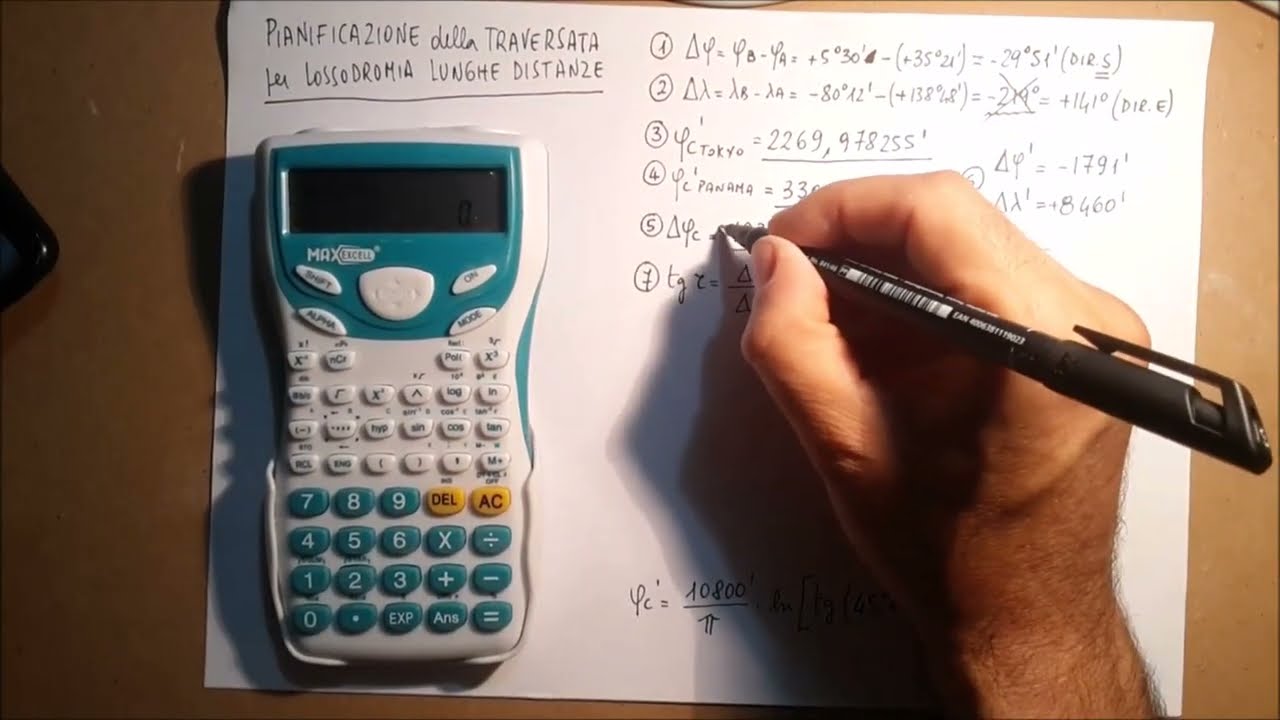 PIANIFICAZIONE della TRAVERSATA
per LOSSODROMIA LUNGHE DISTANZE
① Δφ = φB - φA = +5°30' - (+35°21') = -29°51' (DIR.S)
② Δλ = λB - λA = -80°12' - (+138°48') = -219° = +141° (DIR.E)
③ φc' TOKYO = 2269,978255'
④ φc' PANAMA = 330
⑤ Δφc =
Δφ' = -1791'
Δλ' = +8460'
⑦ tg r = Δ
Δ
φc' = 10800' / π · ln [tg (45°
0.
MAX EXCELL®
SHIFT
ON
ALPHA
MODE
nCr
Pol(
X³
√
X²
^
log
ln
(-)
hyp
sin
cos
tan
RCL
ENG
(
)
,
M+
OFF
7 8 9 DEL AC
4 5 6 X ÷
1 2 3 + −
0 • EXP Ans =
EAN 4006381119023